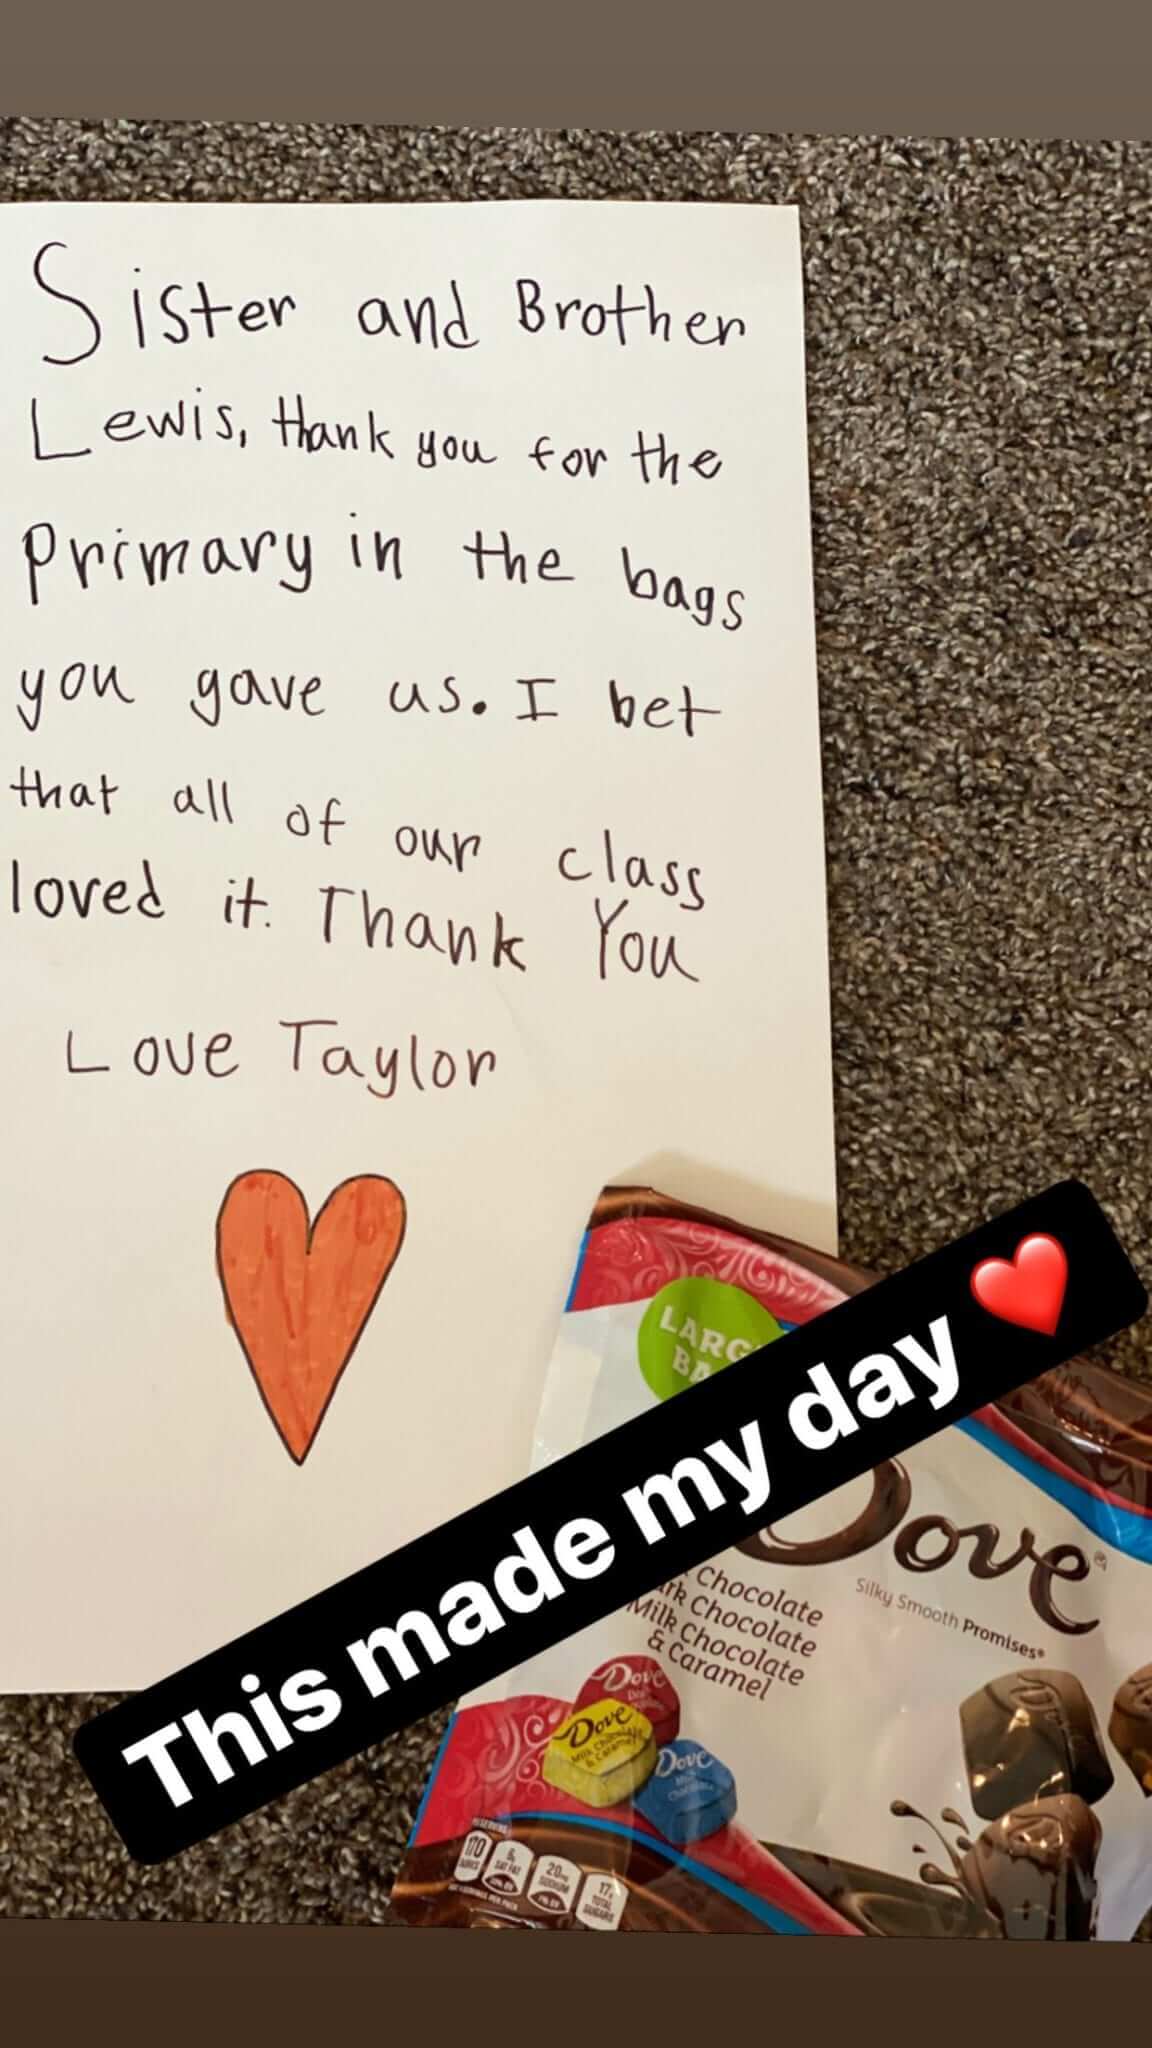 Sister and Brother
Lewis, thank you for the
primary in the bags
you gave us. I bet
that all of our class
loved it. Thank You
Love Taylor
This made my day ❤️
LARG
BA
Dove
Silky Smooth Promises®
Chocolate
rk Chocolate
Milk Chocolate
& Caramel
Dove
Dove
Milk Chocolate
& Caramel
Dove
Milk
Chocolate
110
SAT FAT
20mg
SODIUM
17g
TOTAL
SUGARS